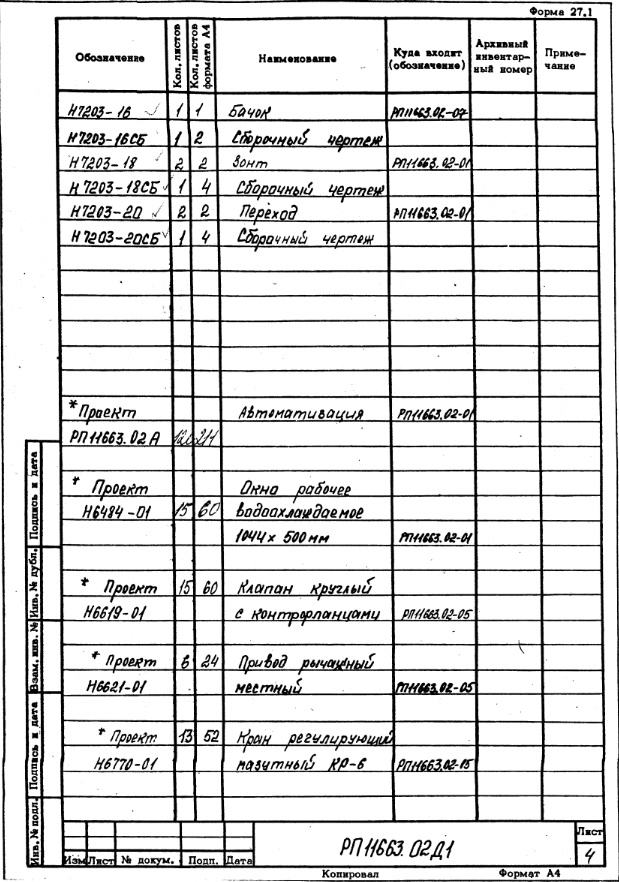 Форма 27.1
Обозначение Кол. листов Кол. листов формата А4 Наименование Куда входит (обозначение) Архивный инвентарный номер Примечание
Н7203-16 1 1 Бачок РП11663.02-07
Н7203-16СБ 1 2 Сборочный чертеж
Н7203-18 2 2 Зонт РП11663.02-01
Н7203-18СБ 1 4 Сборочный чертеж
Н7203-20 2 2 Переход РП11663.02-01
Н7203-20СБ 1 4 Сборочный чертеж
* Проект Автоматизация РП11663.02-01
РП11663.02А 211
* Проект Окно рабочее
Н6484-01 15 60 водоохлаждаемое
1044х500мм РП11663.02-01
* Проект 15 60 Клапан круглый
Н6619-01 с контрфланцами РП11663.02-05
* Проект 6 24 Привод рычажный
Н6621-01 местный РП11663.02-05
* Проект 13 52 Кран регулирующий
Н6770-01 мазутный КР-6 РП11663.02-15
Инв. № подл. Подпись и дата Взам. инв. № Инв. № дубл. Подпись и дата
РП11663.02Д1
Лист
4
Изм Лист № докум. Подп. Дата
Копировал Формат А4